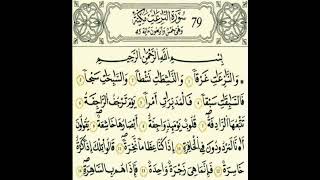 سُورَةُ النَّازِعَاتِ مَكِّيَّةٌ
79
بِسْمِ اللَّهِ الرَّحْمَٰنِ الرَّحِيمِ
وَالنَّازِعَاتِ غَرْقًا وَالنَّاشِطَاتِ نَشْطًا وَالسَّابِحَاتِ سَبْحًا
فَالسَّابِقَاتِ سَبْقًا فَالْمُدَبِّرَاتِ أَمْرًا يَوْمَ تَرْجُفُ الرَّاجِفَةُ
تَتْبَعُهَا الرَّادِفَةُ قُلُوبٌ يَوْمَئِذٍ وَاجِفَةٌ أَبْصَارُهَا خَاشِعَةٌ يَقُولُونَ
أَءِنَّا لَمَرْدُودُونَ فِي الْحَافِرَةِ أَءِذَا كُنَّا عِظَامًا نَخِرَةً قَالُوا تِلْكَ إِذًا كَرَّةٌ
خَاسِرَةٌ فَإِنَّمَا هِيَ زَجْرَةٌ وَاحِدَةٌ فَإِذَا هُمْ بِالسَّاهِرَةِ